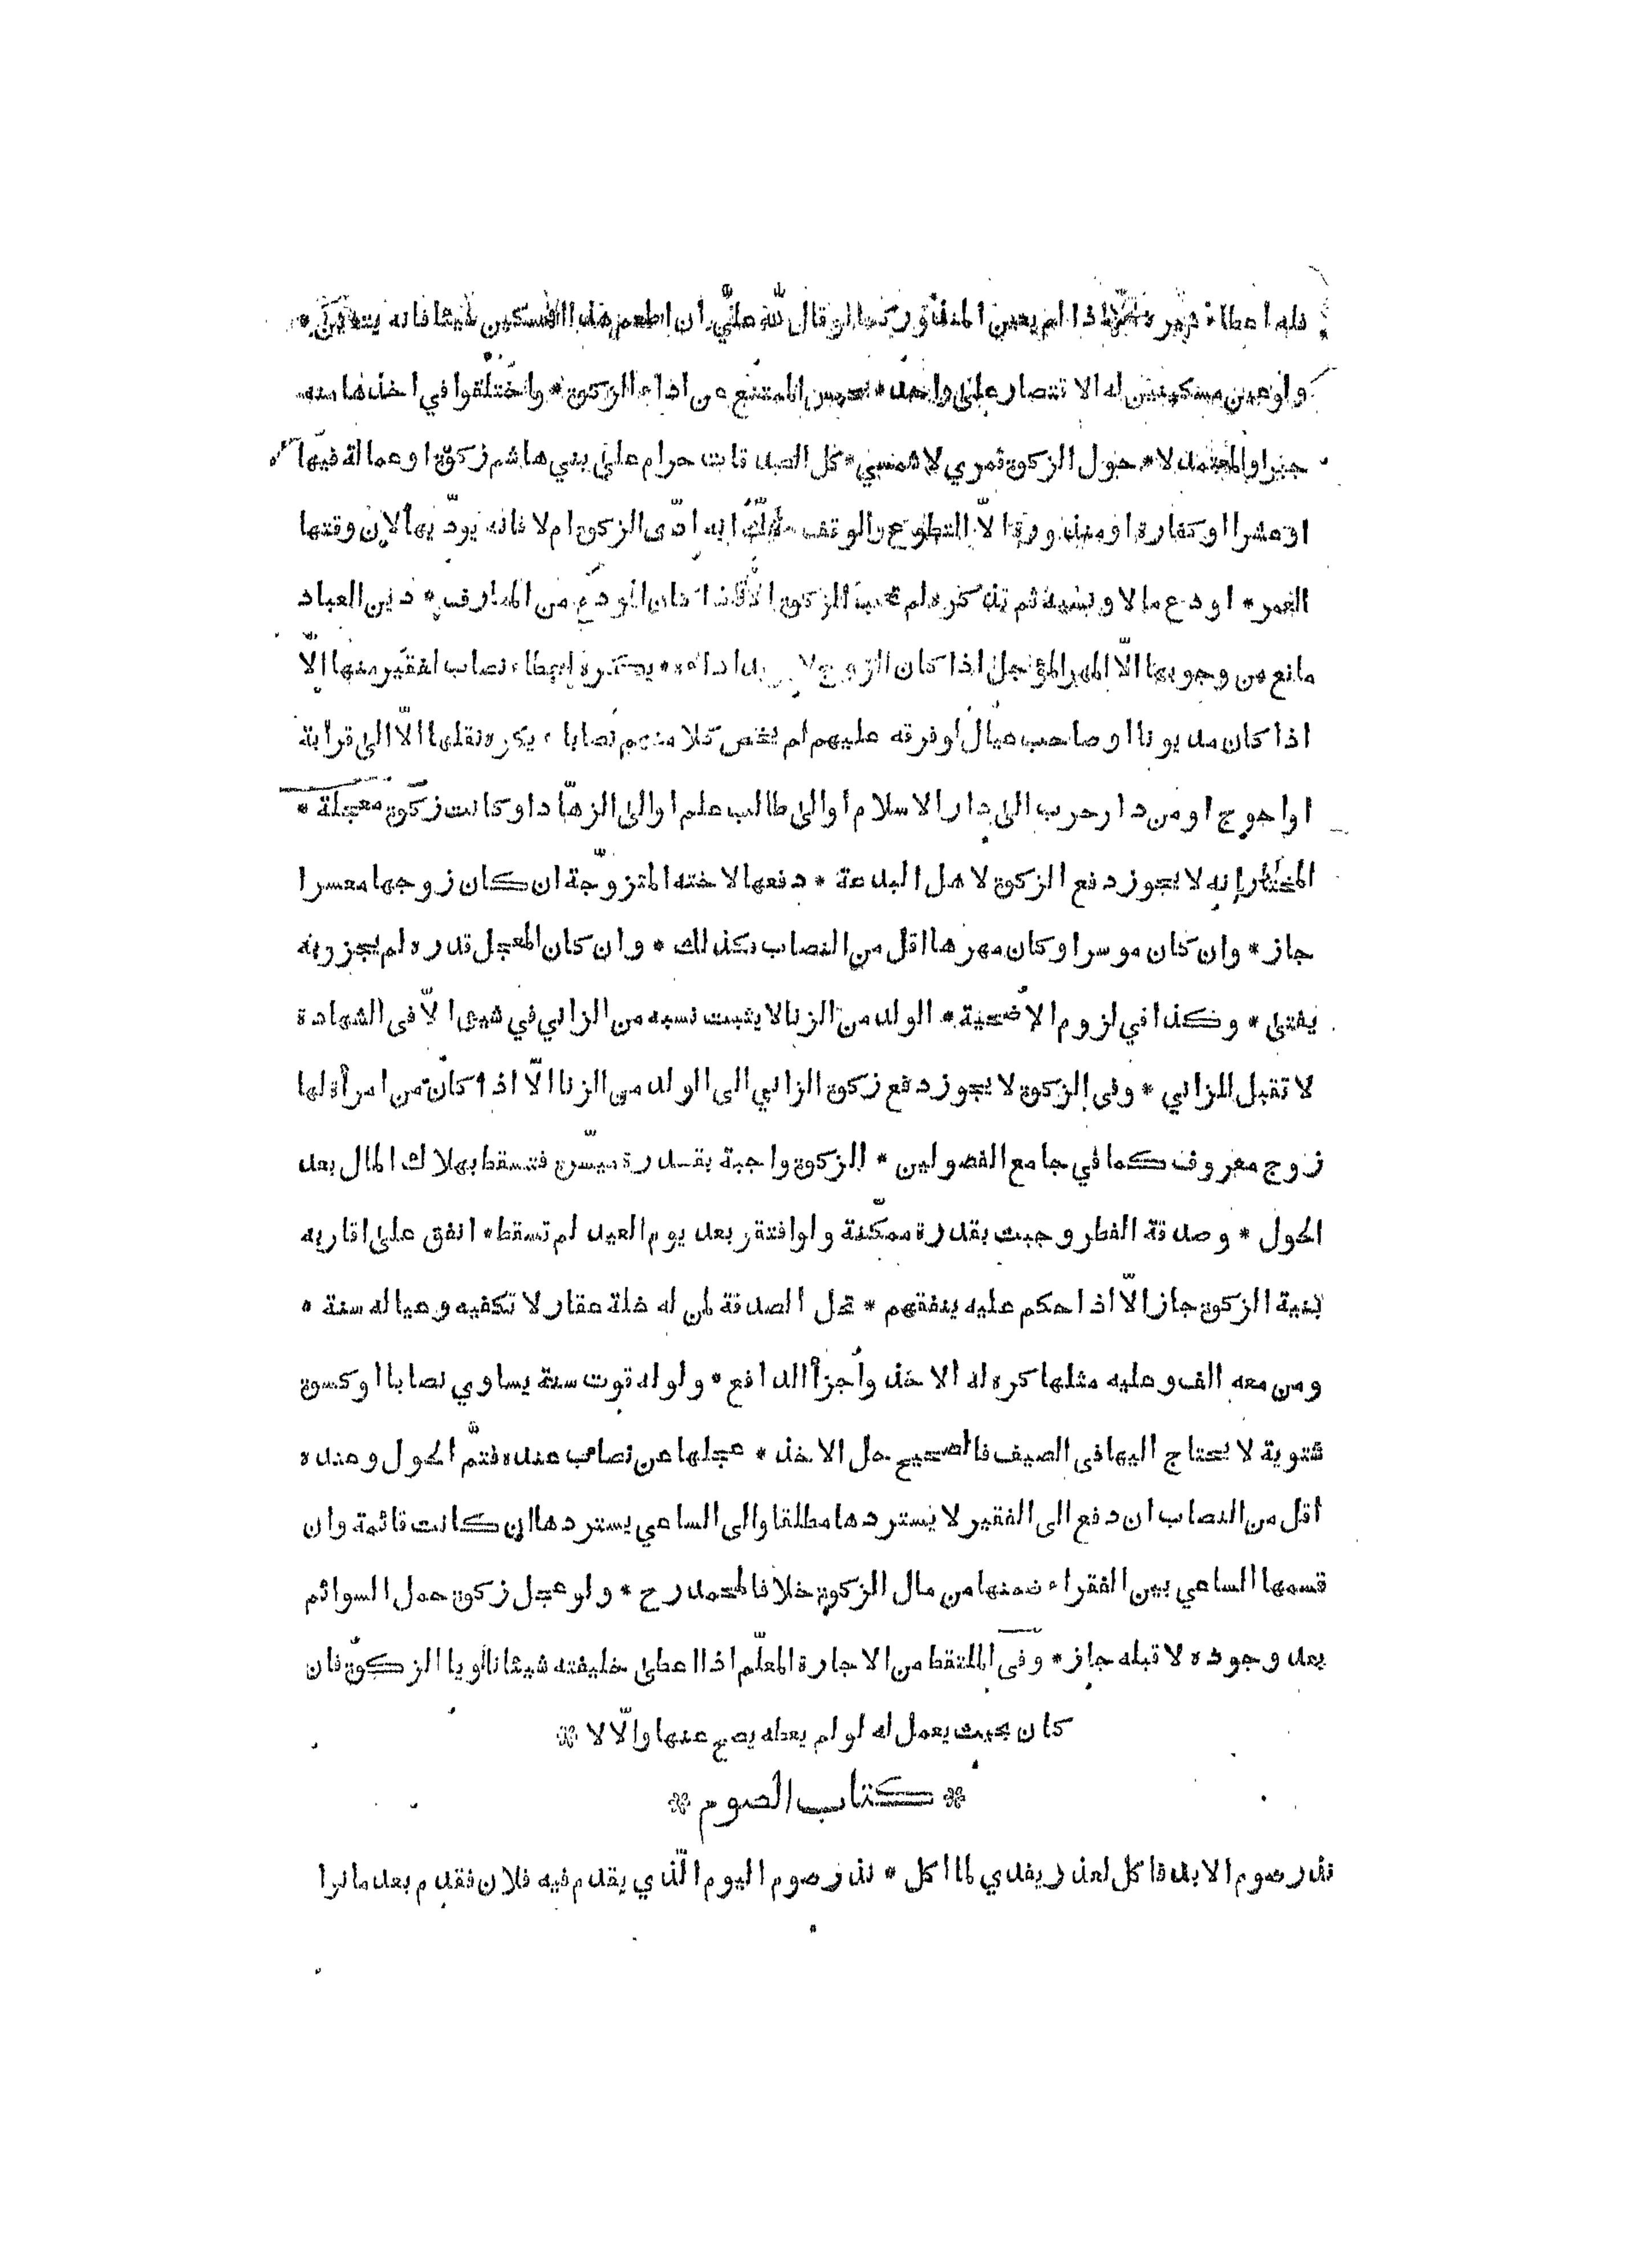 فله اعطاء غيره الا اذا لم يعين المنذور كما لو قال لله علىّ أن اطعم هذا المسكين شيئا فانه يتعين *
ولو عين مسكينين له الاقتصار على واحد * يحبس الممتنع عن اداء الزكوة * واختلفوا في اخذها منه
جبرا والمعتمد لا * حول الزكوة قمري لا شمسي * كل الصدقات حرام على بني هاشم زكوة او عمالة فيها
او عشرا او كفارة او منذورة الاّ التطوع والوقف * شكّ انه ادّى الزكوة ام لا فانه يودّيها لان وقتها
العمر * اودع مالا ونسيه ثم تذكره لم تجب الزكوة الاّ اذا كان المودع من المعارف * دين العباد
مانع من وجوبها الاّ المهر المؤجل اذا كان الزوج لا يريد اداءه * يكره اعطاء نصاب لفقير منها الاّ
اذا كان مديونا او صاحب عيال لو فرقه عليهم لم يخص كلا منهم نصابا * يكره نقلها الاّ الى قرابة
او احوج او من دار حرب الى دار الاسلام أو الى طالب علم او الى الزهّاد او كانت زكوة معجلة *
المختار انه لا يجوز دفع الزكوة لاهل البدعة * دفعها لاخته المتزوّجة ان كان زوجها معسرا
جاز * وان كان موسرا وكان مهرها اقل من النصاب فكذلك * وان كان المعجل قدره لم يجز وبه
يفتى * وكذا في لزوم الاضحية * الولد من الزنا لا يثبت نسبه من الزاني في شيئ الاّ في الشهادة
لا تقبل للزاني * وفي الزكوة لا يجوز دفع زكوة الزاني الى الولد من الزنا الاّ اذا كان من امرأة لها
زوج معروف كما في جامع الفصولين * الزكوة واجبة بقدرة ميسّرة فتسقط بهلاك المال بعد
الحول * وصدقة الفطر وجبت بقدرة ممكّنة ولو افتقر بعد يوم العيد لم تسقط * انفق على اقاربه
بنية الزكوة جاز الاّ اذا حكم عليه بنفقتهم * تحل الصدقة لمن له غلة عقار لا تكفيه وعياله سنة *
ومن معه الف وعليه مثلها كره له الاخذ وأجزأ الدافع * ولو له قوت سنة يساوي نصابا او كسوة
شتوية لا يحتاج اليها في الصيف فالصحيح حل الاخذ * عجلها عن نصاب عنده فتمّ الحول وعنده
أقل من النصاب ان دفع الى الفقير لا يستردها مطلقا والى الساعي يستردها ان كانت قائمة وان
قسمها الساعي بين الفقراء ضمنها من مال الزكوة خلافا لمحمد رح * ولو عجل زكوة حمل السوائم
بعد وجوده لا قبله جاز * وفي الملتقط من الاجارة المعلّم اذا اعطى خليفته شيئا ناويا الزكوة فان
كان بحيث يعمل له لو لم يعطه يصح عنها والاّ لا *
* كتاب الصوم *
نذر صوم الابد فاكل لعذر يفدي لما اكل * نذر صوم اليوم الّذي يقدم فيه فلان فقدم بعد ما نوا